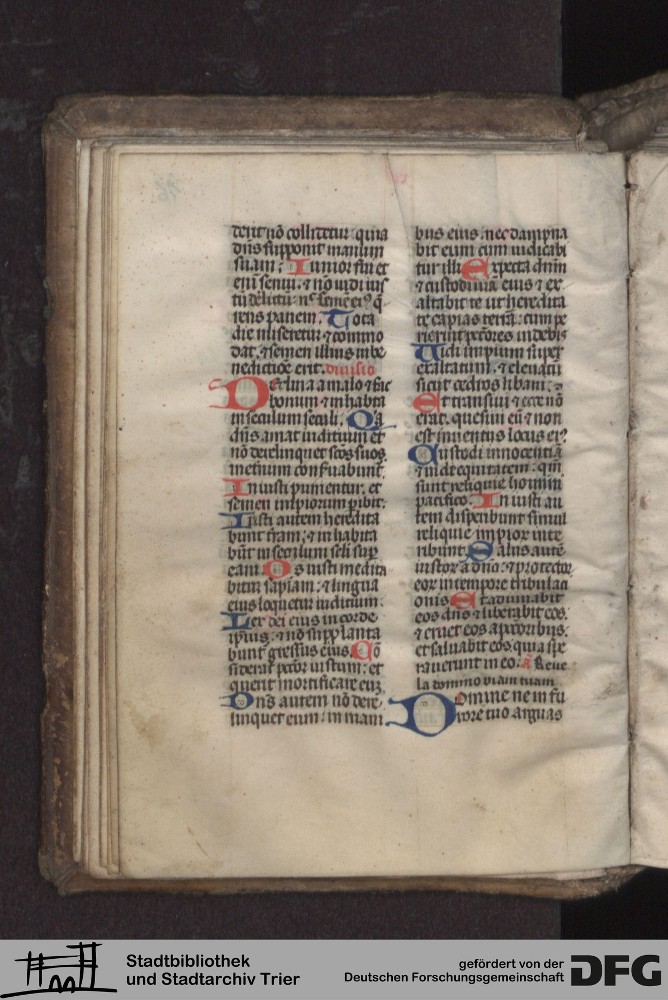 derit nō collidetur: quia
dn̄s supponit manum
suam: Iunior fui et
eni senui: ⁊ nō vidi ius
tū delictū: nͨ semē eiꝰ q̄
rens panem. Tota
die miseretur ⁊ commo
dat: ⁊ semen illius in be
nedictiōe erit. diuisio
Declina a malo ⁊ fac
bonum: ⁊ inhabita
in seculum seculi. Quia
dn̄s amat iudicium et
nō derelinquet scōs suos
ineternum conseruabunt.
Iniusti punientur: et
semen inpiorum ꝑibit.
Iusti autem heredita
bunt trām: ⁊ inhabita
būt in seculum scli super
eam. Os iusti medita
bitur sapiam: ⁊ lingua
eius loquetur iudicium.
Lex dei eius in corde
ipius: ⁊ nō supplanta
bunt gressus eius. Cō
siderat pctōr iustum: et
querit mortificare eum
Dn̄s autem nō dere
linquet eum: in mani
bus eius: nec dampna
bit eum cum iudicabi
tur illi. Expecta dn̄m
⁊ custodi viā eius ⁊ ex
altabit te ut heredita
te capias terrā: cum pe
rierint pctōres uidebis
Uidi impium super
exaltatum: ⁊ eleuatū
sicut cedros libani:
Et transiui ⁊ ecce nō
erat: quesiui eū ⁊ non
est inuentus locus eiꝰ
Custodi innocentiā
⁊ uide equitatem: qm̄
sunt reliquie homini
pacifico. Iniusti au
tem disperibunt simul
reliquie impior inte
ribunt. Salus autē
iustor a dn̄o: ⁊ protector
eor in tempore tribulaci
onis. Et adiuuabit
eos dn̄s ⁊ liberabit eos:
⁊ eruet eos a pctōribus:
et saluabit eos quia spe
rauerunt in eo: a Reue
la domino viam tuam
Domine ne in fu
rore tuo arguas
Stadtbibliothek
und Stadtarchiv Trier
gefördert von der
Deutschen Forschungsgemeinschaft
DFG